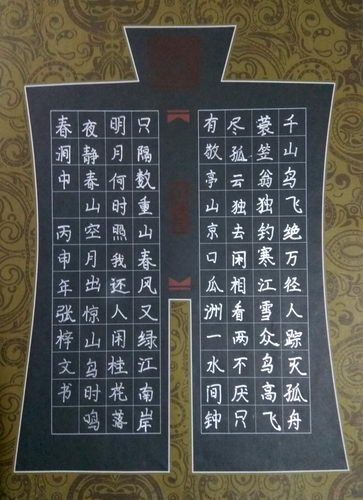 千山鸟飞绝万径人踪灭孤舟
蓑笠翁独钓寒江雪众鸟高飞
尽孤云独去闲相看两不厌只
有敬亭山京口瓜洲一水间钟
只隔数重山春风又绿江南岸
明月何时照我还人闲桂花落
夜静春山空月出惊山鸟时鸣
春涧中 丙申年张梓文书